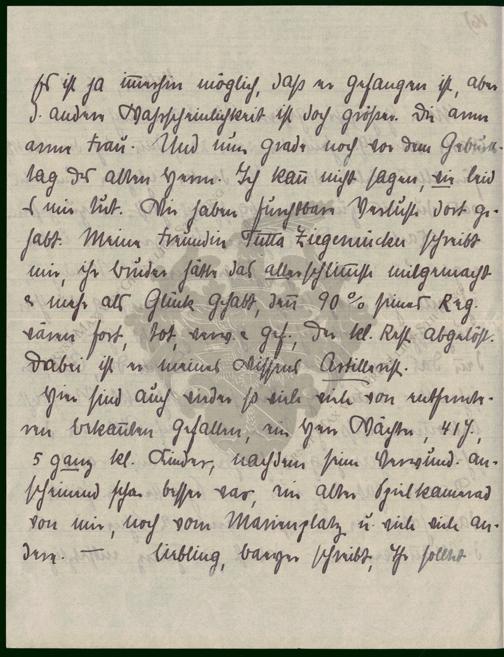 Es ist ja immerhin möglich, daß er gefangen ist, aber
d. andere Wahrscheinlichkeit ist doch größer. Die arme
arme Frau. Und nun grade noch vor dem Geburts-
tag des alten Herrn. Ich kann nicht sagen, wie leid
es mir tut. Wir haben furchtbare Verluste dort ge-
habt. Meine Freundin Tutta schreibt
mir, ihr Bruder hätte das allerschlimmste mitgemacht
& mehr als Glück gehabt, denn 90% seines Reg.
wären fort, tot, verw. & gef., der kl. Rest abgelöst.
Dabei ist er meines Wissens Artillerist.
Hier sind auch wieder so viele viele von entfernte-
ren Bekannten gefallen, ein Herr Wächter, 41 J.,
5 ganz kl. Kinder, nachdem seine Verwund. an-
scheinend schon besser war, ein alter Spielkamerad
von mir, noch vom Marienplatz u. viele viele an-
dere. — Liebling, schreibt, Ihr solltet